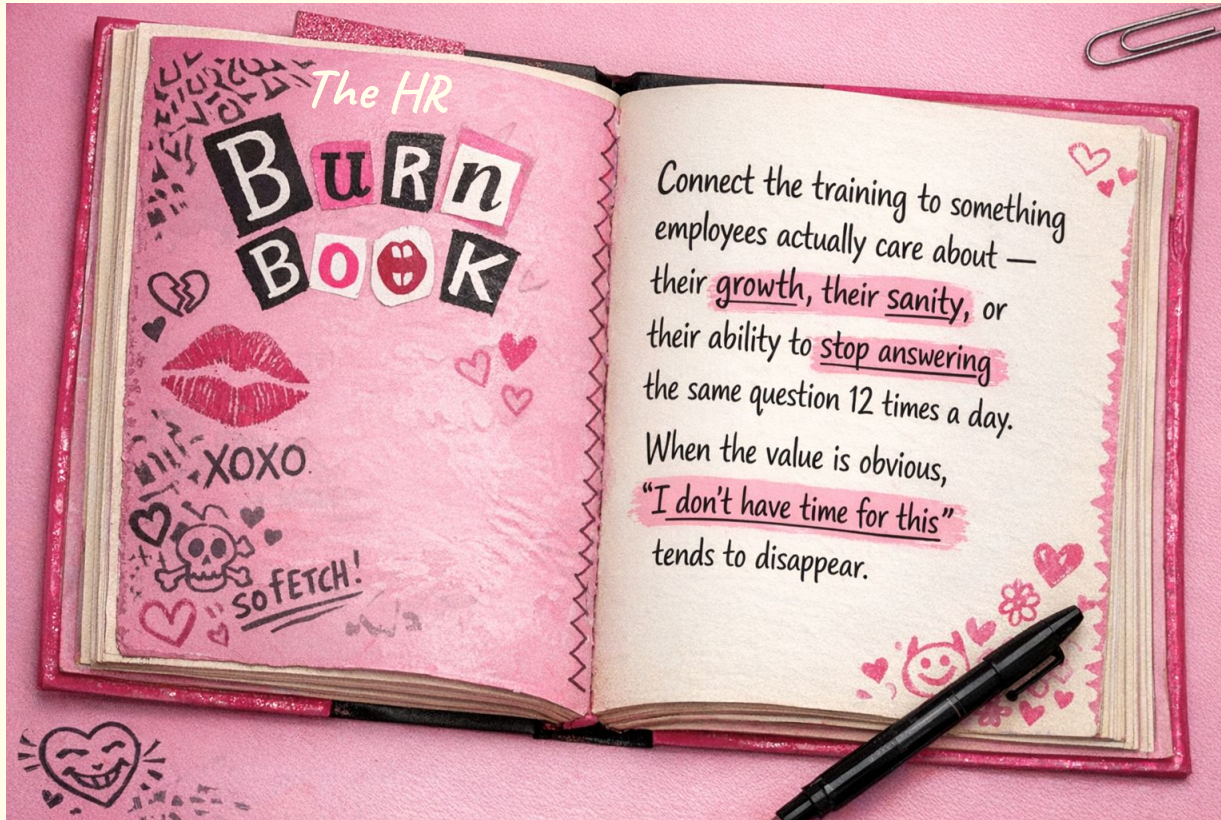 The HR
BuRn
BOOK
XOXO
SO FETCH!
Connect the training to something
employees actually care about —
their growth, their sanity, or
their ability to stop answering
the same question 12 times a day.
When the value is obvious,
“I don't have time for this”
tends to disappear.